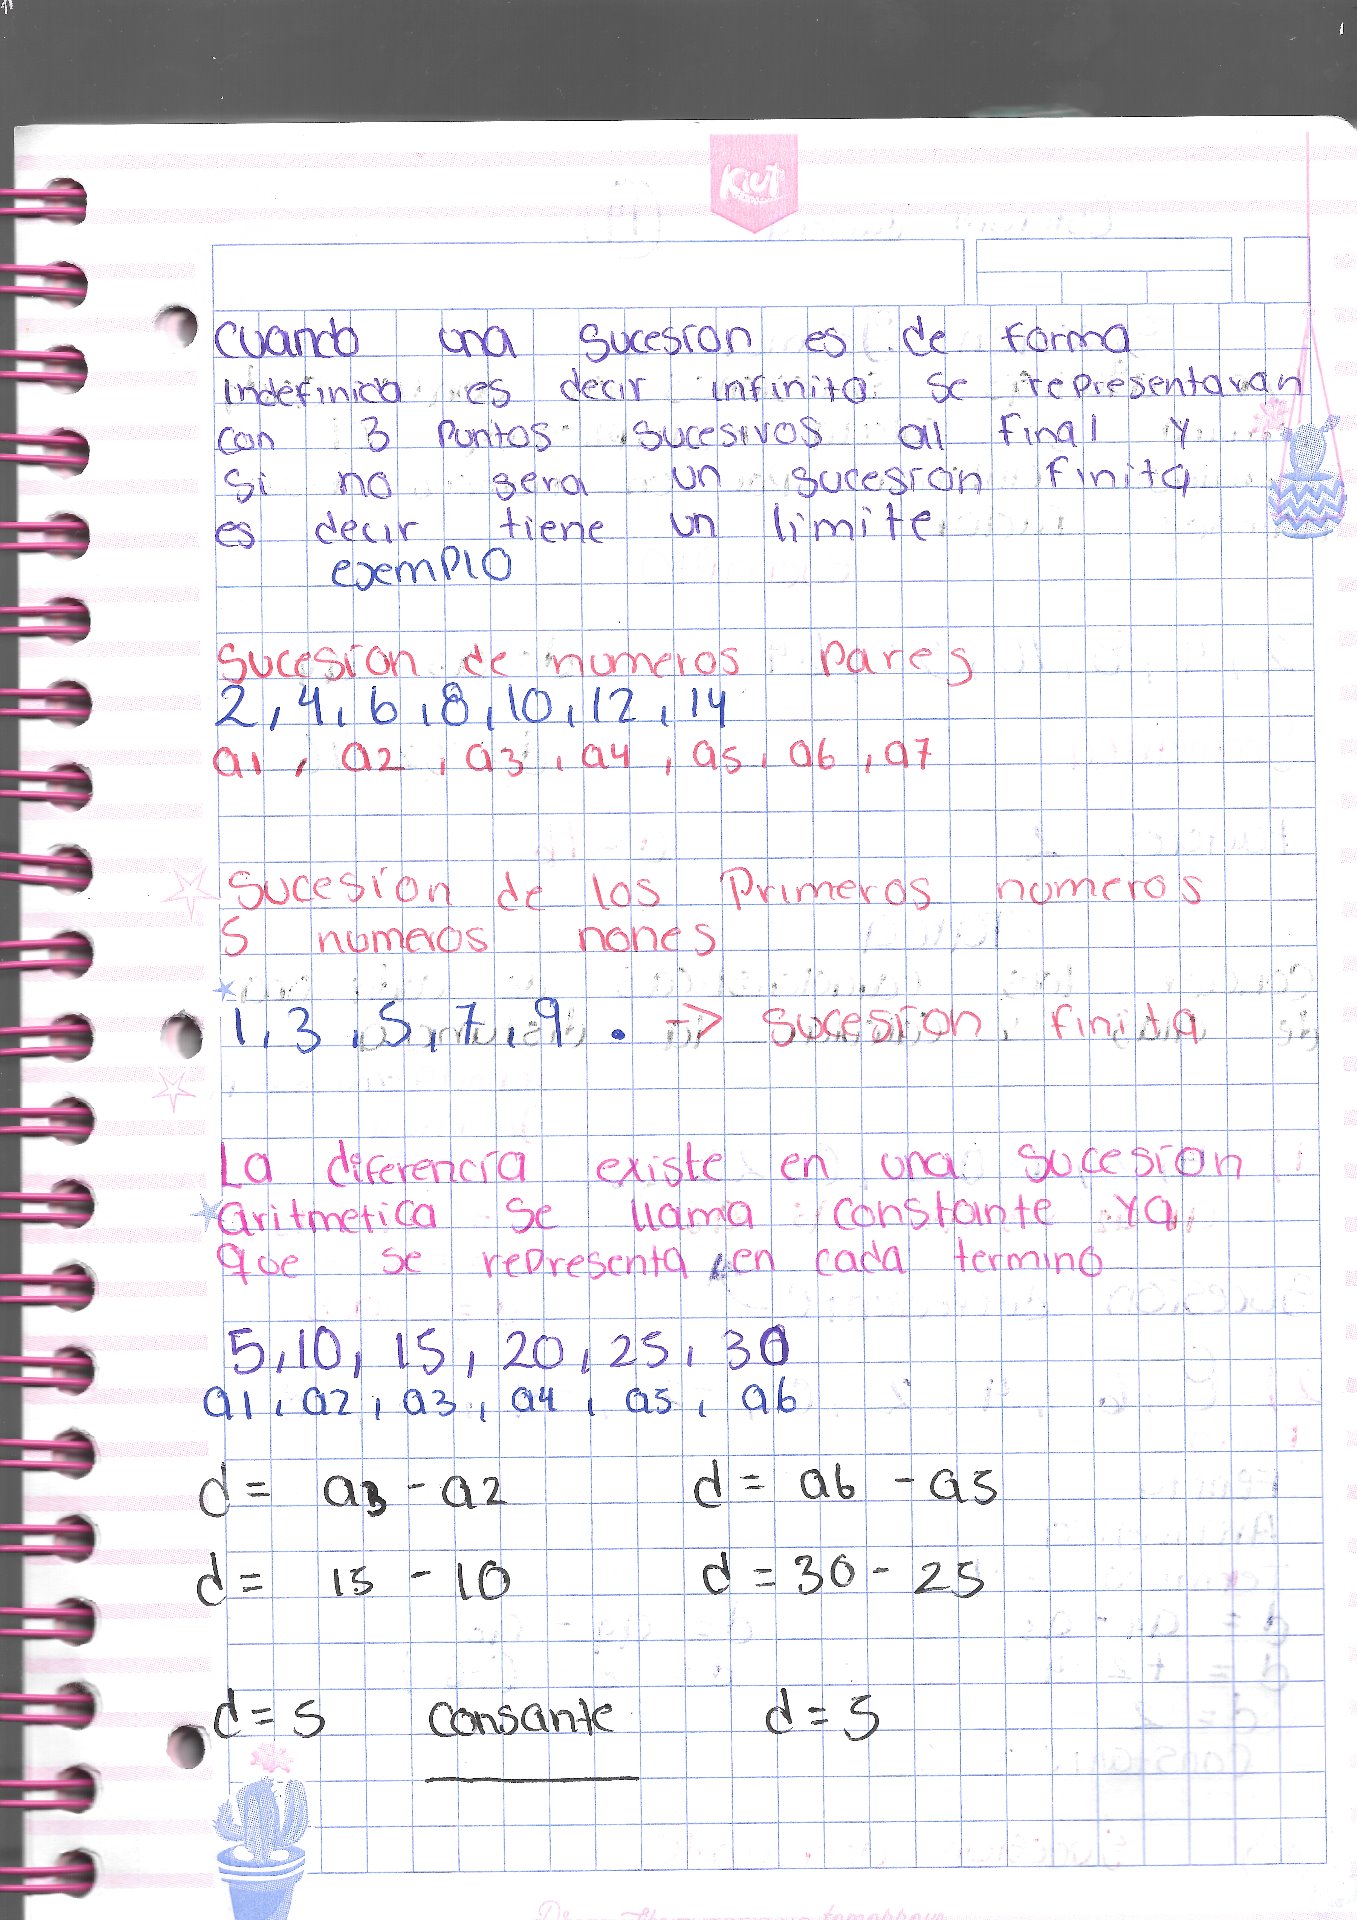 Kiut
cuando una sucesion es de forma
indefinida es decir infinito se representaran
con 3 puntos sucesivos al final y
si no sera un sucesion finita
es decir tiene un limite
exemplo
Sucesion de numeros pares
2, 4, 6, 8, 10, 12, 14
a1, a2, a3, a4, a5, a6, a7
Sucesion de los Primeros numeros
5 numeros nones
1, 3, 5, 7, 9. -> sucesion finita
La diferencia existe en una sucesion
aritmetica se llama constante ya
que se representa en cada termino
5, 10, 15, 20, 25, 30
a1, a2, a3, a4, a5, a6
d = a3 - a2 d = a6 - a5
d = 15 - 10 d = 30 - 25
d = 5 consante d = 5